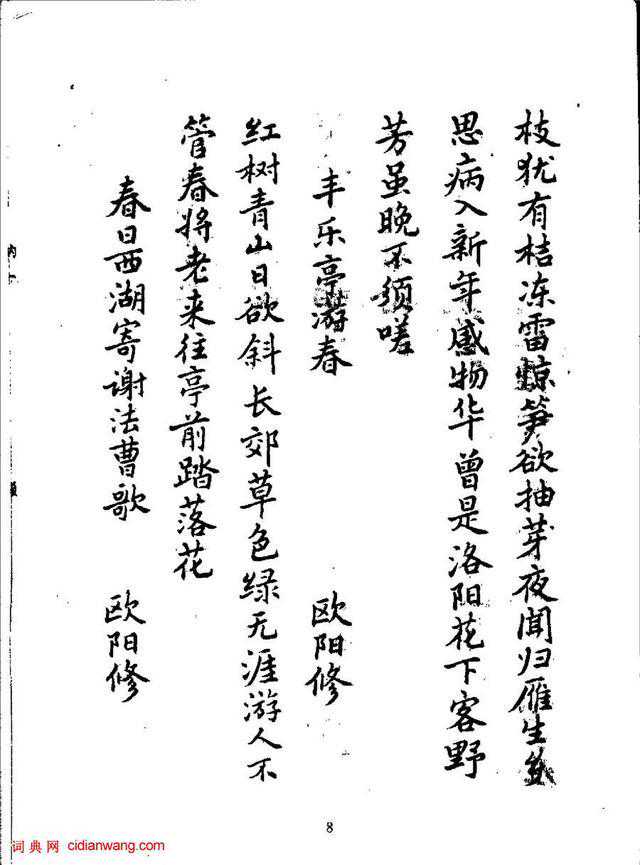 枝犹有桔冻雷惊笋欲抽芽夜闻归雁生乡
思病入新年感物华曾是洛阳花下客野
芳虽晚不须嗟
丰乐亭游春 欧阳修
红树青山日欲斜长郊草色绿无涯游人不
管春将老来往亭前踏落花
春日西湖寄谢法曹歌 欧阳修
8
词典网 cidianwang.com